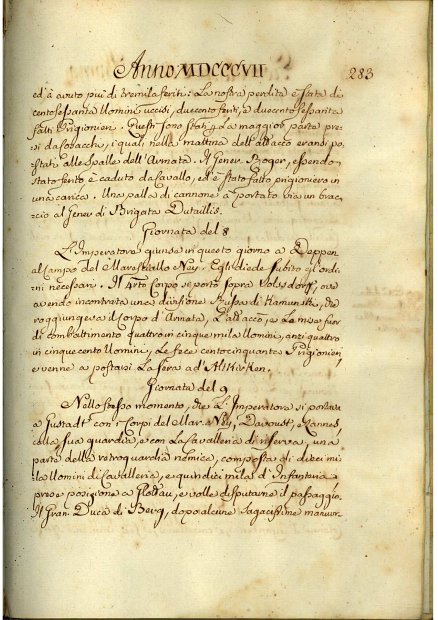 Anno MDCCCVII
283
ed à avuto piu di tremila feriti: La nostra perdita è stata di
centosessanta Uomini uccisi, duecento feriti, e duecentosessanta
fatti Prigionieri. Questi sono stati la maggior parte pre-
si da Cosacchi, i quali nella mattina dell'attacco eransi po-
stati alle spalle dell'Armata. Il Gener. Roger, essendo
stato ferito è caduto da Cavallo, ed è stato fatto prigioniero in
una carica. Una palla di cannone à portato via un brac-
cio al Gener. di Brigata Dutaillis.
Giornata del 8
L'Imperatore giunse in questo giorno a Deppen
al Campo del Maresciallo Ney. Egli diede subito gl'ordi-
ni necessari. Il Corpo si portò sopra Volsdorff, ove
avendo incontrata una divisione Russa di Kamenski, che
raggiungeva il Corpo d'Armata, l'attaccò, e la mise fuor
di combattimento quattro in cinque mila Uomini, anzi quattro
in cinque cento Uomini, Le fece centocinquanta Prigionieri,
e venne a postarsi la sera ad' Altkirken.
Giornata del 9
Nello stesso momento, che L'Imperatore si portava
a Gustadt con i Corpi del Mar. Ney, Davoust, e Lannes
colla sua guardia, e con La Cavalleria di riserva, una
parte della retroguardia nemica, composta di dieci mi-
la Uomini di Cavalleria, e quindici mila d'Infanteria
prese posizione a Glottau, e volle disputarne il passaggio.
Il Gran Duca di Berg, dopo alcune sagacissime manuvr-